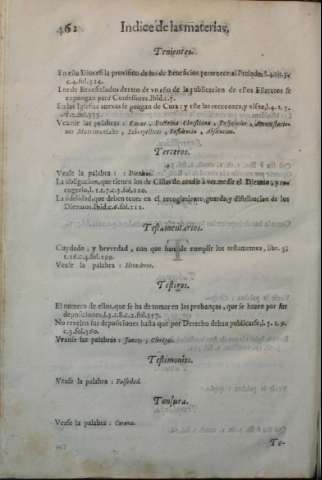 462 Indice de las materias,
Tenientes.
En este Diocesi la provision de los de Beneficios pertenece al Prelado, l.
c.4.fol.324.
Los de Beneficiados dentro de un año de la publicacion de estos Estatutos se
expongan para Confessores. Ibid.c.5.
En las Iglesias nuevas se pongan de Cura; y esse las reconozca, y visite, l.4.t.
Veanse las palabras: Curas, Doctrina Christiana, Predicador,
nes Matrimoniales, Interpositos, Residencia, Absencias.
Terceros.
Vease la palabra: Diezmos.
La obligacion, que tienen los de Cillas de acudir à ver medir el Diezmo, y
l.1.t.7.c.3.fol.100.
La fidelidad, que deben tener en el recogimiento, guarda, y distribucion de los
Diezmos. Ibid.c.6.fol.112.
Testamentarios.
Cuydado, y brevedad, con que han de cumplir los testamentos, lib. 3.
t.16.c.4.fol.299.
Vease la palabra: Herederos.
Testigos.
El numero de ellos, que se ha de tomar en las probanças, que se hazen por sus
deposiciones, l.2.t.8.c.2.fol.257.
No revelen sus deposiciones hasta que por Derecho deban publicarse, l.2.t.9.
c.3.fol.260.
Veanse las palabras: Juezes, Clerigos.
Testimonios.
Vease la palabra: Falsedad.
Tonsura.
Vease la palabra: Corona.
Te-